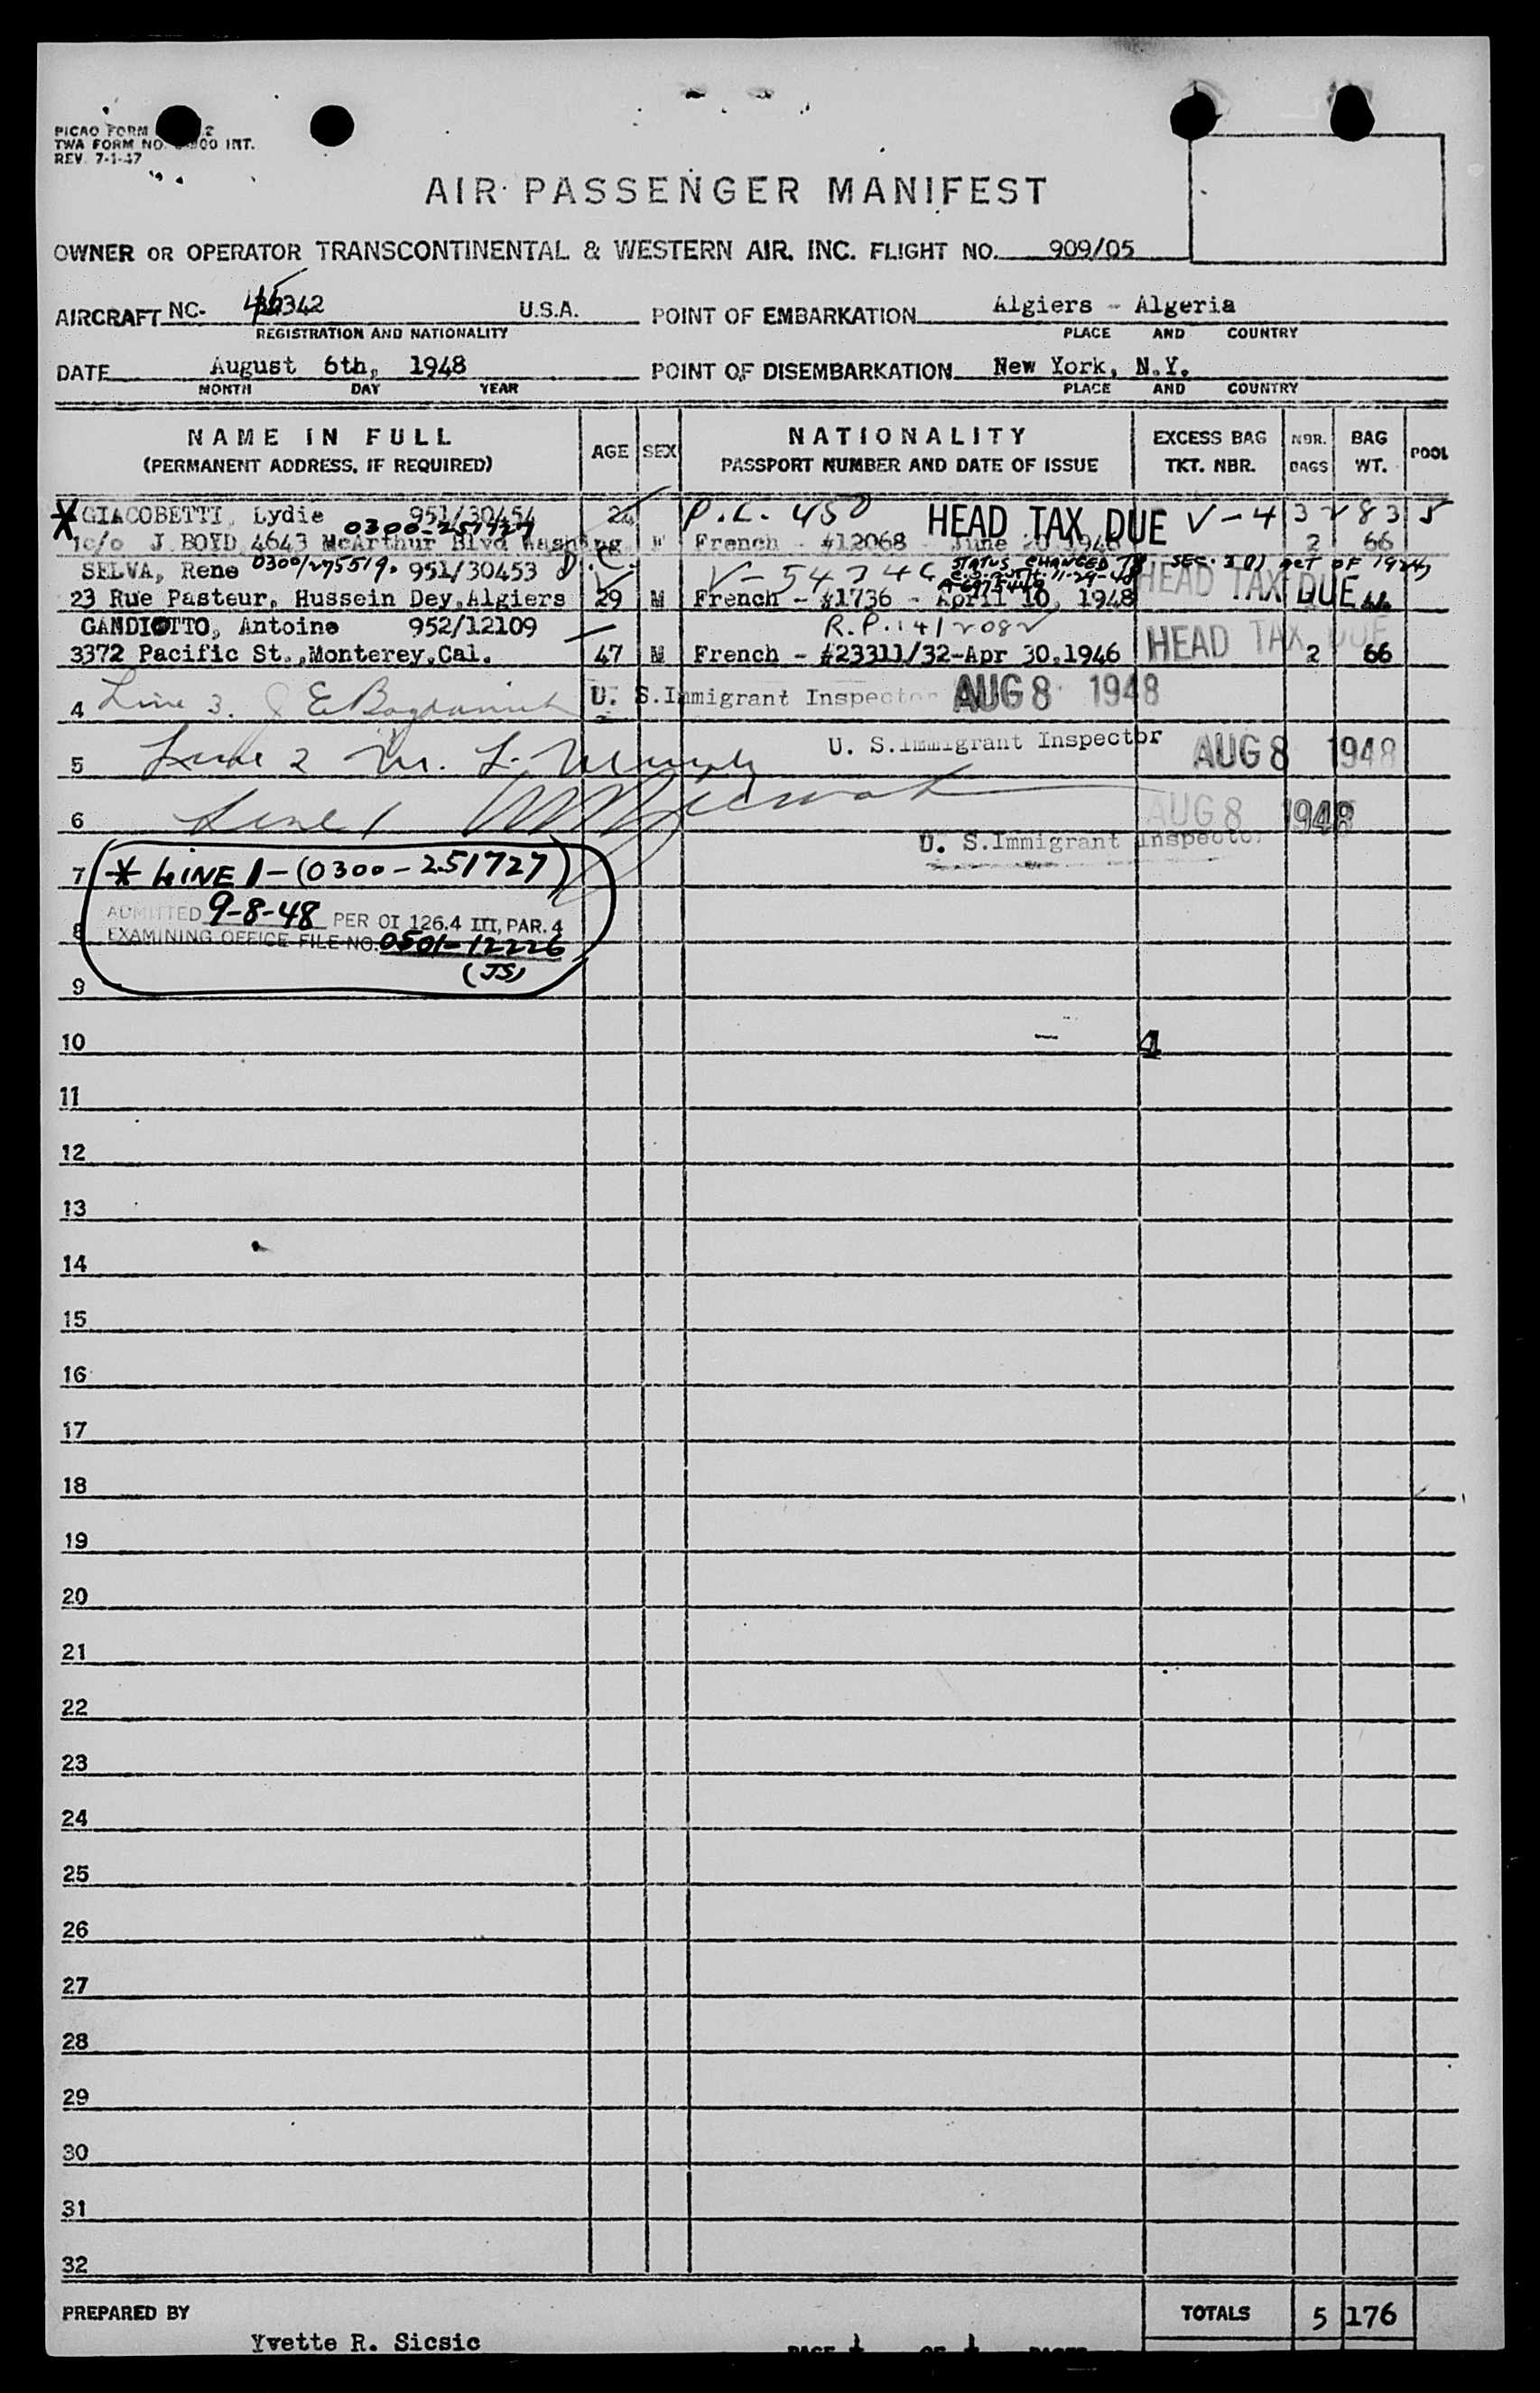 PICAO FORM
TWA FORM NO. 00 INT.
REV. 7-1-47
AIR PASSENGER MANIFEST
OWNER OR OPERATOR TRANSCONTINENTAL & WESTERN AIR, INC. FLIGHT NO. 909/05
AIRCRAFT NC- 342 U.S.A. POINT OF EMBARKATION Algiers - Algeria
REGISTRATION AND NATIONALITY PLACE AND COUNTRY
DATE August 6th, 1948 POINT OF DISEMBARKATION New York, N.Y.
MONTH DAY YEAR PLACE AND COUNTRY
NAME IN FULL AGE SEX NATIONALITY EXCESS BAG NBR. BAG POOL
(PERMANENT ADDRESS, IF REQUIRED) PASSPORT NUMBER AND DATE OF ISSUE TKT. NBR. BAGS WT.
* GIACOBETTI, Lydie 951/30454 24 P.L. 450 HEAD TAX DUE V-4131835
0300-251727
1 c/o J BOYD 4643 McArthur Blvd Washing D.C. French - #12068 June 1948 2 66
SELVA, Rene 0300/275519. 951/30453 V-54 STATUS CHANGED TO SEC. 3(1) ACT OF 1924
23 Rue Pasteur, Hussein Dey, Algiers 29 M French - #1736 - April 10, 1948 HEAD TAX DUE 44
GANDIOTTO, Antoine 952/12109 R.P.
3372 Pacific St., Monterey, Cal. 47 M French - #23311/32-Apr 30, 1946 HEAD TAX DUE 2 66
4 Line 3. U. S. Immigrant Inspector AUG 8 1948
U. S. Immigrant Inspector AUG 8 1948
5 Line 2 M. L. Murphy
6 Line 1 AUG 8 1948
U. S. Immigrant Inspector
7 * LINE 1-(0300-251727)
ADMITTED 9-8-48 PER OI 126.4 III, PAR. 4
8 EXAMINING OFFICE FILE NO. 0501-12226
(JS)
9
10 4
11
12
13
14
15
16
17
18
19
20
21
22
23
24
25
26
27
28
29
30
31
32
PREPARED BY TOTALS 5 176
Yvette R. Sicsic PAGE 1 OF 1 PAGES